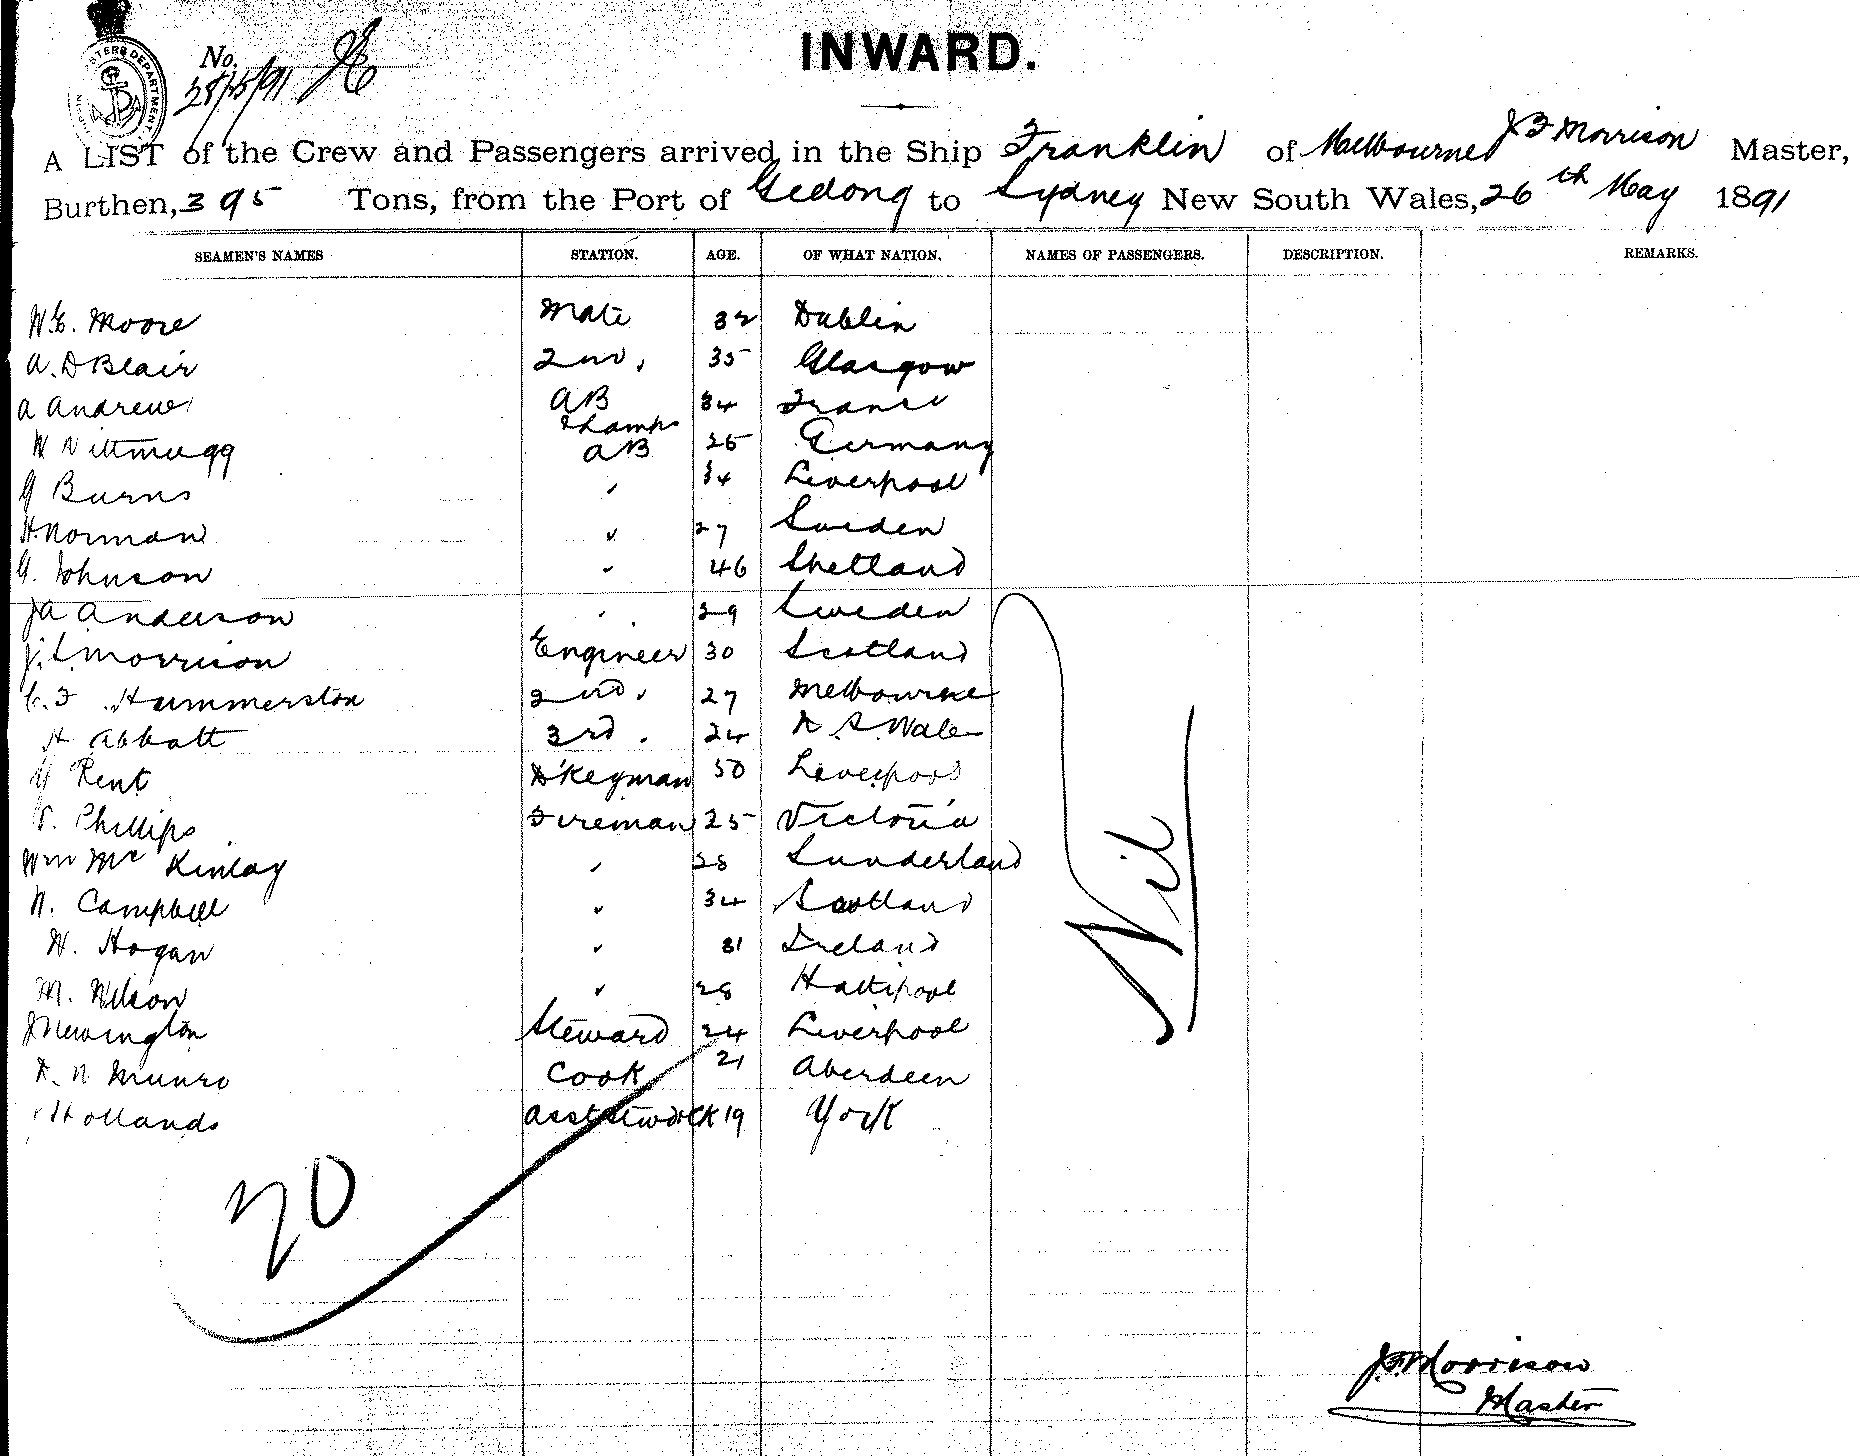 No.
INWARD.
A LIST of the Crew and Passengers arrived in the Ship Franklin of Melbourne J F Morrison Master,
Burthen, 395 Tons, from the Port of Geelong to Sydney New South Wales, 26th May 1891
SEAMEN'S NAMES STATION. AGE. OF WHAT NATION. NAMES OF PASSENGERS. DESCRIPTION. REMARKS.
W. G. Moore Mate 32 Dublin
A. D Blair 2nd, 35 Glasgow
A Andrew AB 34 France
& Lamps
W AB 25 Germany
G Burns " 34 Liverpool
H. Norman " 27 Sweden
G. Johnson " 46 Shetland
JA Anderson " 29 Sweden
J. L Morrison Engineer 30 Scotland
C. F Hummerston 2nd, 27 Melbourne
H Abbott 3rd. 24 N S Wales
Kent D'Keyman 50 Liverpool
Phillips Fireman 25 Victoria
Wm Mc Kinlay " 28 Sunderland
N. Campbell " 34 Scotland
H. Hogan " 31 Ireland
M. Wilson " 28 Hartlpool
J Newington Steward 24 Liverpool
D. N Munro Cook 21 Aberdeen
Hollands 19 York
Nil
20
J. F. Morrison
Master